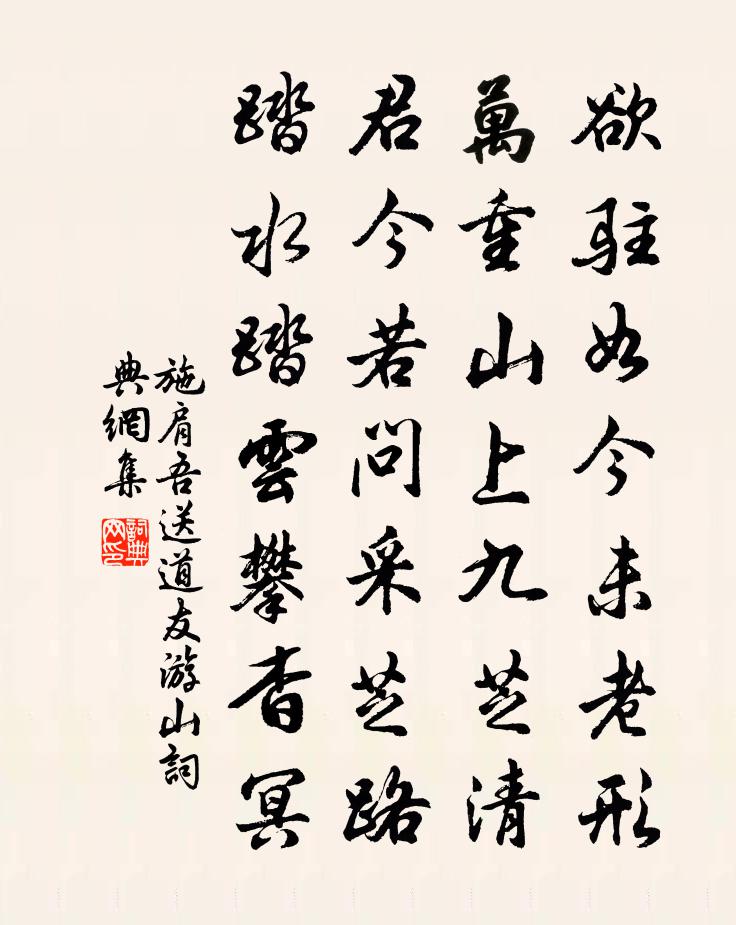 欲駐如今未老形
萬重山上九芝清
君今若問采芝路
踏水踏雲攀杳冥
施肩吾送道友游山詞
典網集
詞典網印